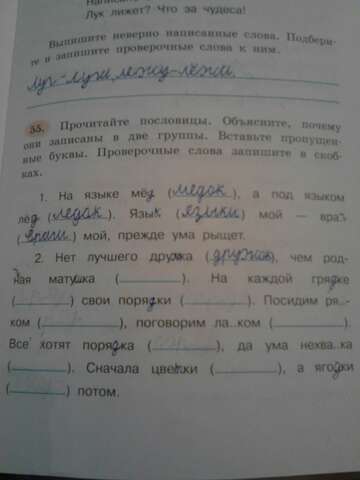 Лук лижет? Что за чудеса!
Выпишите неверно написанные слова. Подбери-
те и запишите проверочные слова к ним.
луг-луга лежу-лёжа.
55. Прочитайте пословицы. Объясните, почему
они записаны в две группы. Вставьте пропущен-
ные буквы. Проверочные слова запишите в скоб-
ках.
1. На языке мёд (медок), а под языком
лёд (ледок). Язык (языки) мой — враг
(враги) мой, прежде ума рыщет.
2. Нет лучшего дружка (дружок), чем род-
ная матушка ( ). На каждой грядке
( ) свои порядки ( ). Посидим ря..-
ком ( ), поговорим ла..ком ( ).
Все хотят порядка ( ), да ума нехва..ка
( ). Сначала цветки ( ), а ягодки
( ) потом.